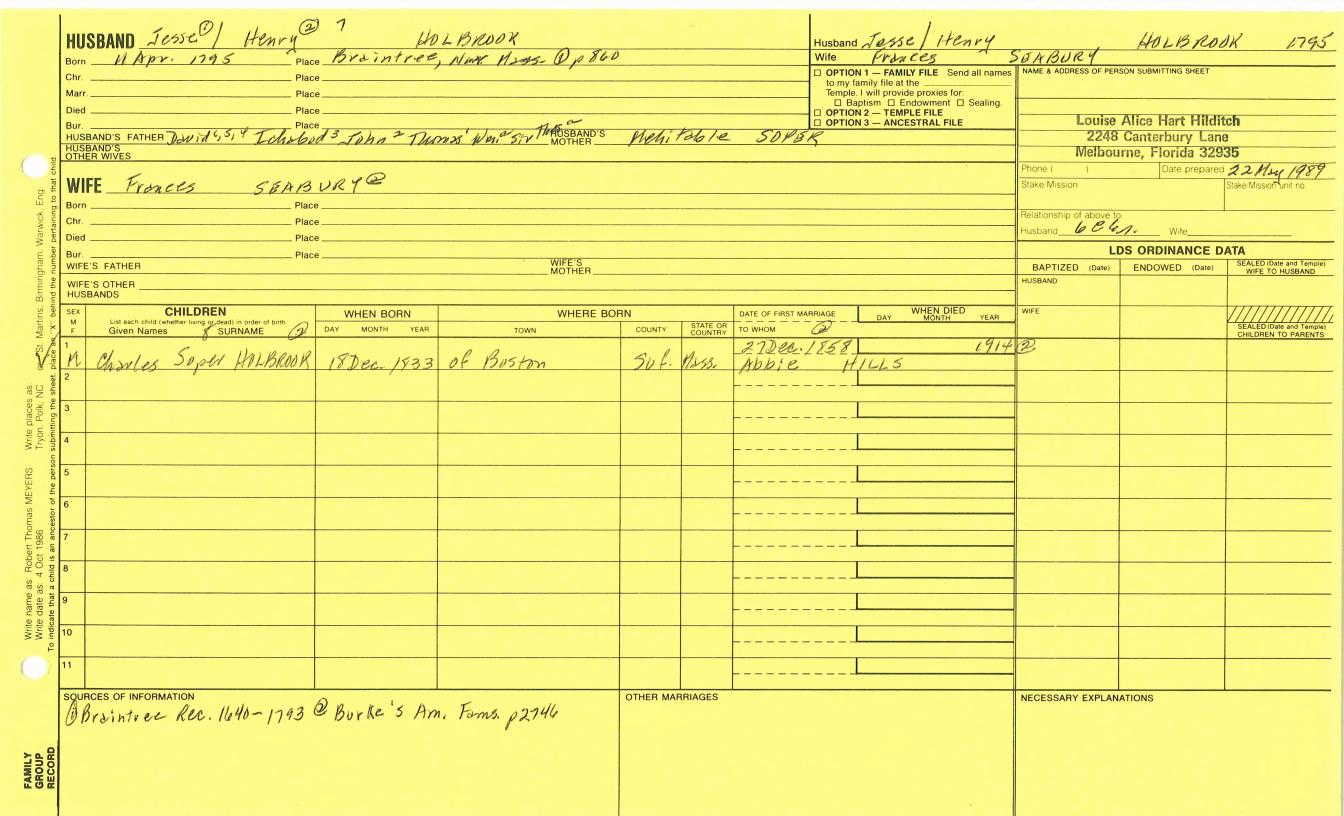 HUSBAND Jesse① / Henry② 7 HOLBROOK
Born 11 Apr. 1795 Place Braintree, Mass. ① p860
Chr. Place
Marr. Place
Died Place
Bur. Place
HUSBAND'S FATHER David Ichabod³ John² Thomas¹ HUSBAND'S MOTHER Mehitable SOPER
HUSBAND'S OTHER WIVES
Husband Jesse / Henry HOLBROOK 1795
Wife Frances SEABURY
☐ OPTION 1 — FAMILY FILE Send all names
to my family file at the
Temple. I will provide proxies for:
☐ Baptism ☐ Endowment ☐ Sealing.
☐ OPTION 2 — TEMPLE FILE
☐ OPTION 3 — ANCESTRAL FILE
NAME & ADDRESS OF PERSON SUBMITTING SHEET
Louise Alice Hart Hilditch
2248 Canterbury Lane
Melbourne, Florida 32935
Phone ( ) Date prepared 22 May 1989
Stake/Mission Stake/Mission unit no.
Relationship of above to:
Husband Wife
WIFE Frances SEABURY②
Born Place
Chr. Place
Died Place
Bur. Place
WIFE'S FATHER WIFE'S MOTHER
WIFE'S OTHER HUSBANDS
LDS ORDINANCE DATA
BAPTIZED (Date) ENDOWED (Date) SEALED (Date and Temple) WIFE TO HUSBAND
HUSBAND
WIFE
SEALED (Date and Temple) CHILDREN TO PARENTS
SEX M F
CHILDREN
List each child (whether living or dead) in order of birth
Given Names 8 SURNAME ②
WHEN BORN
DAY MONTH YEAR
WHERE BORN
TOWN COUNTY STATE OR COUNTRY
DATE OF FIRST MARRIAGE
TO WHOM ②
WHEN DIED
DAY MONTH YEAR
1 M Charles Soper HOLBROOK 18 Dec. 1833 of Boston Suf. Mass. 27 Dec. 1858 1914 ②
Abbie HILLS
2
3
4
5
6
7
8
9
10
11
SOURCES OF INFORMATION
① Braintree Rec. 1640-1793 ② Burke's Am. Fams. p2746
OTHER MARRIAGES
NECESSARY EXPLANATIONS
Write name as: Robert Thomas MEYERS Write places as: Tryon, Polk, NC
St. Martins, Birmingham, Warwick, Eng.
Write date as: 4 Oct 1986
To indicate that a child is an ancestor of the person submitting the sheet, place an "X" behind the number pertaining to that child.
FAMILY
GROUP
RECORD